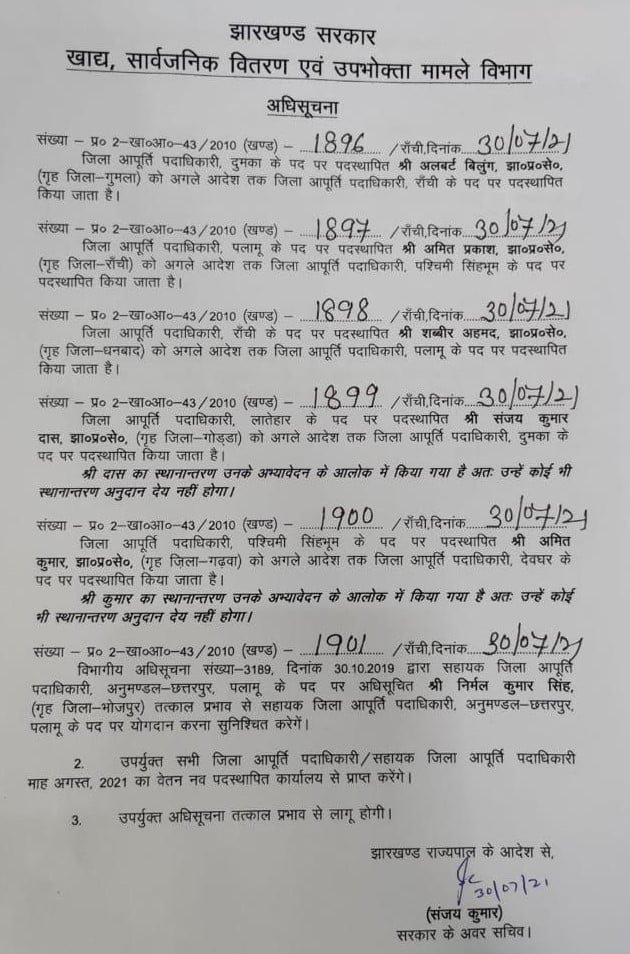 झारखण्ड सरकार
खाद्य, सार्वजनिक वितरण एवं उपभोक्ता मामले विभाग
अधिसूचना
संख्या – प्र० 2-खा०आ०-43/2010 (खण्ड) – 1896 /राँची,दिनांक 30/07/21
जिला आपूर्ति पदाधिकारी, दुमका के पद पर पदस्थापित श्री अलबर्ट बिलुंग, झा०प्र०से०,
(गृह जिला–गुमला) को अगले आदेश तक जिला आपूर्ति पदाधिकारी, राँची के पद पर पदस्थापित
किया जाता है।
संख्या – प्र० 2-खा०आ०-43/2010 (खण्ड) – 1897 /राँची,दिनांक 30/07/21
जिला आपूर्ति पदाधिकारी, पलामू के पद पर पदस्थापित श्री अमित प्रकाश, झा०प्र०से०,
(गृह जिला–राँची) को अगले आदेश तक जिला आपूर्ति पदाधिकारी, पश्चिमी सिंहभूम के पद पर
पदस्थापित किया जाता है।
संख्या – प्र० 2-खा०आ०-43/2010 (खण्ड) – 1898 /राँची,दिनांक 30/07/21
जिला आपूर्ति पदाधिकारी, राँची के पद पर पदस्थापित श्री शब्बीर अहमद, झा०प्र०से०,
(गृह जिला–धनबाद) को अगले आदेश तक जिला आपूर्ति पदाधिकारी, पलामू के पद पर पदस्थापित
किया जाता है।
संख्या – प्र० 2-खा०आ०-43/2010 (खण्ड) – 1899 /राँची,दिनांक 30/07/21
जिला आपूर्ति पदाधिकारी, लातेहार के पद पर पदस्थापित श्री संजय कुमार
दास, झा०प्र०से०, (गृह जिला–गोड्डा) को अगले आदेश तक जिला आपूर्ति पदाधिकारी, दुमका के
पद पर पदस्थापित किया जाता है।
श्री दास का स्थानान्तरण उनके अभ्यावेदन के आलोक में किया गया है अतः उन्हें कोई भी
स्थानान्तरण अनुदान देय नहीं होगा।
संख्या – प्र० 2-खा०आ०-43/2010 (खण्ड) – 1900 /राँची,दिनांक 30/07/21
जिला आपूर्ति पदाधिकारी, पश्चिमी सिंहभूम के पद पर पदस्थापित श्री अमित
कुमार, झा०प्र०से०, (गृह ज़िला–गढ़वा) को अगले आदेश तक जिला आपूर्ति पदाधिकारी, देवघर के
पद पर पदस्थापित किया जाता है।
श्री कुमार का स्थानान्तरण उनके अभ्यावेदन के आलोक में किया गया है अतः उन्हें कोई
भी स्थानान्तरण अनुदान देय नहीं होगा।
संख्या – प्र० 2-खा०आ०-43/2010 (खण्ड) – 1901 /राँची,दिनांक 30/07/21
विभागीय अधिसूचना संख्या-3189, दिनांक 30.10.2019 द्वारा सहायक जिला आपूर्ति
पदाधिकारी, अनुमण्डल–छत्तरपुर, पलामू के पद पर अधिसूचित श्री निर्मल कुमार सिंह,
(गृह जिला–भोजपुर) तत्काल प्रभाव से सहायक जिला आपूर्ति पदाधिकारी, अनुमण्डल–छत्तरपुर,
पलामू के पद पर योगदान करना सुनिश्चित करेगें।
2. उपर्युक्त सभी जिला आपूर्ति पदाधिकारी/सहायक जिला आपूर्ति पदाधिकारी
माह अगस्त, 2021 का वेतन नव पदस्थापित कार्यालय से प्राप्त करेंगे।
3. उपर्युक्त अधिसूचना तत्काल प्रभाव से लागू होगी।
झारखण्ड राज्यपाल के आदेश से,
30/07/21
(संजय कुमार)
सरकार के अवर सचिव।